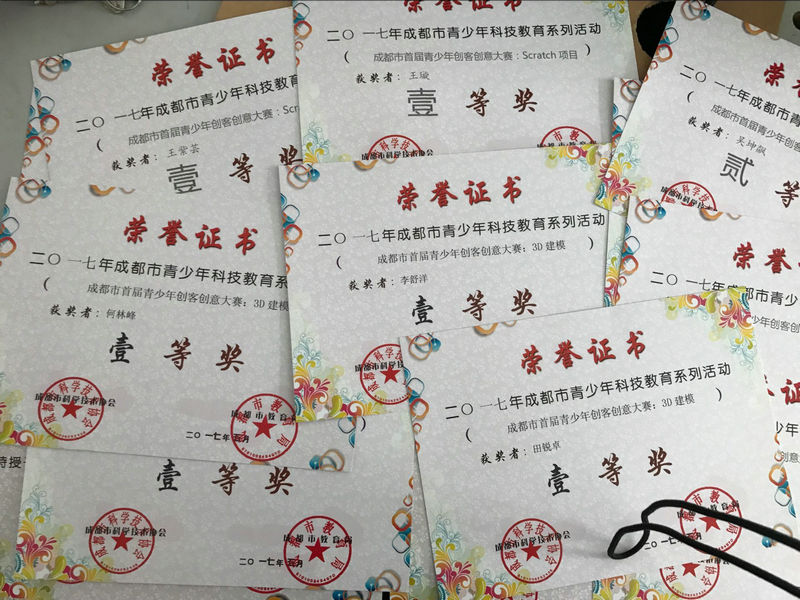 荣誉证书
二〇一七年成都市青少年科技教育
成都市首届青少年创客创意大赛：Scr
获奖者：王紫芸
壹 等 奖
二〇一七年成都市青少年科技教育系列活动
（成都市首届青少年创客创意大赛：Scratch 项目）
获奖者：王璇
壹 等 奖
荣
二〇一七年成都市青少年科技教
（成都市首届青少年创客创
获奖者：吴坤飙
贰 等
荣誉证书
二〇一七年成都市青少年科技教育系
（成都市首届青少年创客创意大赛：3D 建模
获奖者：何林峰
壹 等 奖
二〇一七年五月
荣誉证书
二〇一七年成都市青少年科技教育系列活动
（成都市首届青少年创客创意大赛：3D 建模）
获奖者：李舒洋
壹 等 奖
荣誉
二〇一七年成都市青少
少年创客创意
荣誉证书
二〇一七年成都市青少年科技教育系列活动
（成都市首届青少年创客创意大赛：3D 建模）
获奖者：田锐卓
壹 等 奖
二〇一七年五月
壹 等 奖
二〇一七年五月